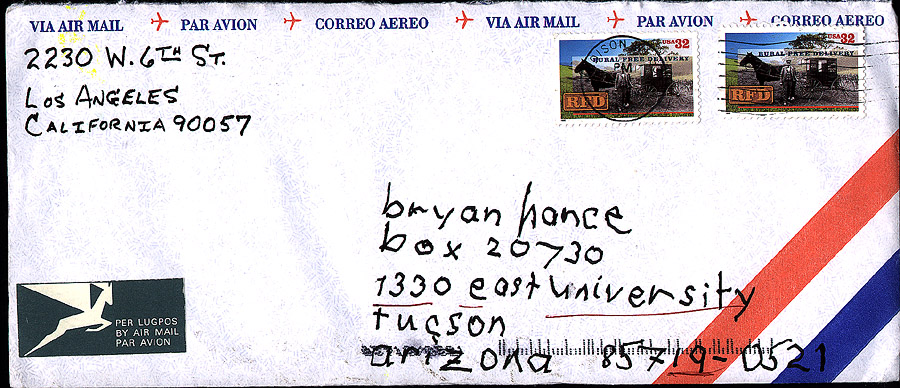 VIA AIR MAIL PAR AVION CORREO AEREO VIA AIR MAIL PAR AVION CORREO AEREO
2230 W. 6TH ST.
LOS ANGELES
CALIFORNIA 90057
USA 32
RURAL FREE DELIVERY
RFD
USA 32
RURAL FREE DELIVERY
RFD
PM
bryan hance
box 20730
1330 east university
tucson
arizona 85719-0521
PER LUGPOS
BY AIR MAIL
PAR AVION